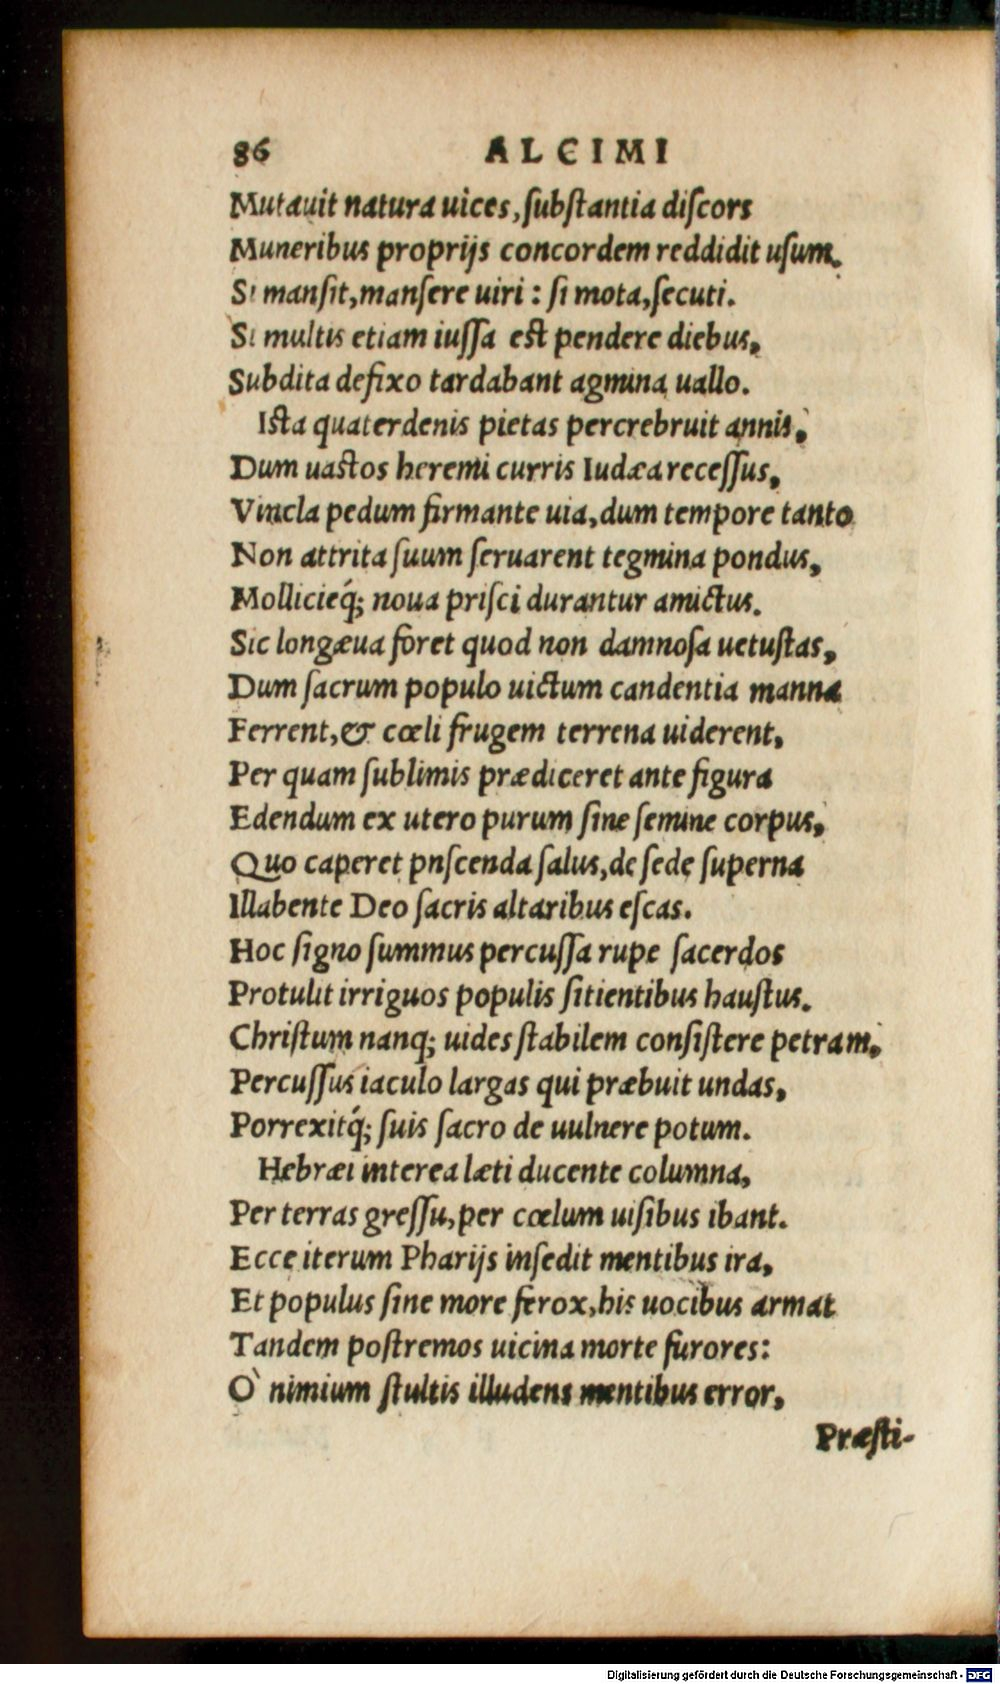 86 ALCIMI
Mutauit natura uices, ſubſtantia diſcors
Muneribus proprijs concordem reddidit uſum.
Si manſit, manſere uiri: ſi mota, ſecuti.
Si multis etiam iuſſa eſt pendere diebus,
Subdita defixo tardabant agmina uallo.
Iſta quaterdenis pietas percrebruit annis,
Dum uaſtos heremi curris Iudæa receſſus,
Vincla pedum firmante uia, dum tempore tanto
Non attrita ſuum ſeruarent tegmina pondus,
Mollicieq́; noua priſci durantur amictus.
Sic longæua foret quod non damnoſa uetuſtas,
Dum ſacrum populo uictum candentia manna
Ferrent, & cœli frugem terrena uiderent,
Per quam ſublimis prædiceret ante figura
Edendum ex utero purum ſine ſemine corpus,
Quo caperet pnſcenda ſalus, de ſede ſuperna
Illabente Deo ſacris altaribus eſcas.
Hoc ſigno ſummus percuſſa rupe ſacerdos
Protulit irriguos populis ſitientibus hauſtus.
Chriſtum nanq; uides ſtabilem conſiſtere petram,
Percuſſus iaculo largas qui præbuit undas,
Porrexitq́; ſuis ſacro de uulnere potum.
Hebræi interea læti ducente columna,
Per terras greſſu, per cœlum uiſibus ibant.
Ecce iterum Pharijs inſedit mentibus ira,
Et populus ſine more ferox, his uocibus armat
Tandem poſtremos uicina morte furores:
Ò nimium ſtultis illudens mentibus error,
Præſti-
Digitalisierung gefördert durch die Deutsche Forschungsgemeinschaft - DFG